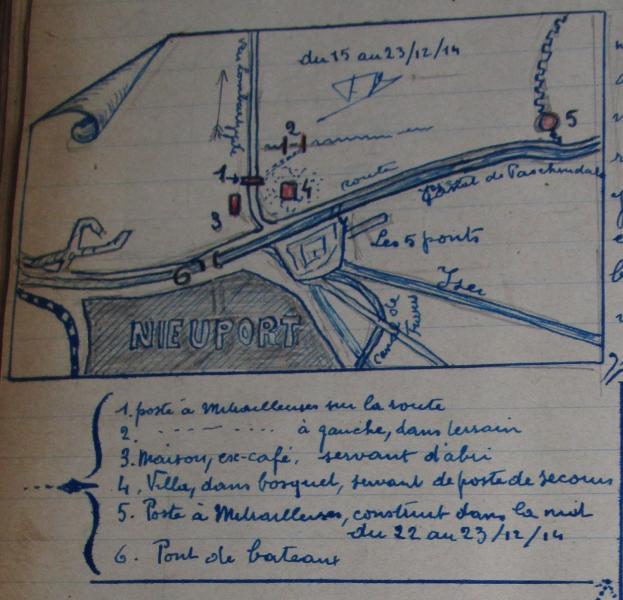 du 15 au 23/12/14
vers Lombaertzyde
2
5
1
4
3
route
Canal de Paschendale
Les 5 ponts
6
Yser
Canal de Furnes
NIEUPORT
1. poste à Mitrailleuses sur la route
2. - - - - - - à gauche, dans terrain
3. Maison, ex-café, servant d'abri
4. Villa, dans bosquet, servant de poste de secours
5. Poste à Mitrailleuses, construit dans la nuit
du 22 au 23/12/14
6. Pont de bateaux